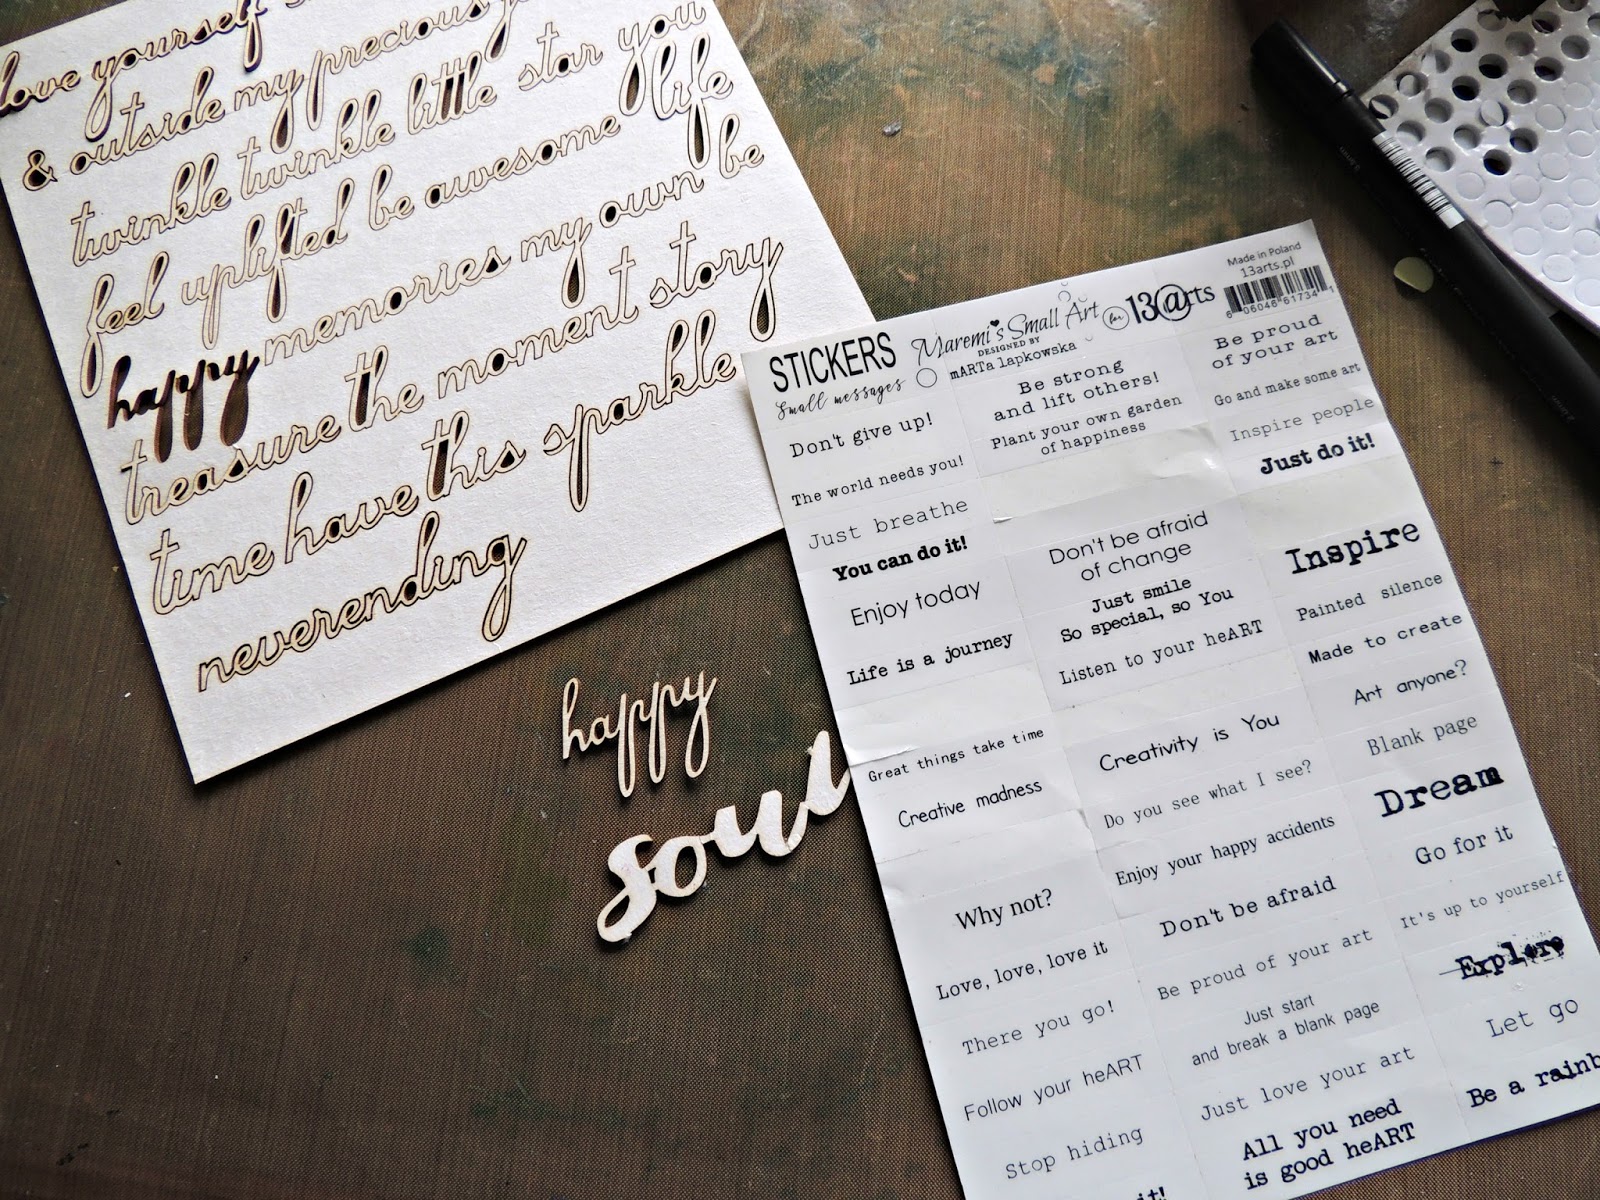 love yourself
& outside my precious
twinkle twinkle little star you
feel uplifted be awesome life
happy memories my own be
treasure the moment story
time have this sparkle
neverending
happy
soul
STICKERS
Small messages
Maremi's Small Art for 13@rts
DESIGNED BY
mARTa lapkowska
Made in Poland
13arts.pl
6 06046 61734 1
Don't give up!
The world needs you!
Just breathe
You can do it!
Enjoy today
Life is a journey
Great things take time
Creative madness
Why not?
Love, love, love it
There you go!
Follow your heART
Stop hiding
Be strong
and lift others!
Plant your own garden
of happiness
Don't be afraid
of change
Just smile
So special, so You
Listen to your heART
Creativity is You
Do you see what I see?
Enjoy your happy accidents
Don't be afraid
Be proud of your art
Just start
and break a blank page
Just love your art
All you need
is good heART
Be proud
of your art
Go and make some art
Inspire people
Just do it!
Inspire
Painted silence
Made to create
Art anyone?
Blank page
Dream
Go for it
It's up to yourself
Explore
Let go
Be a rainb